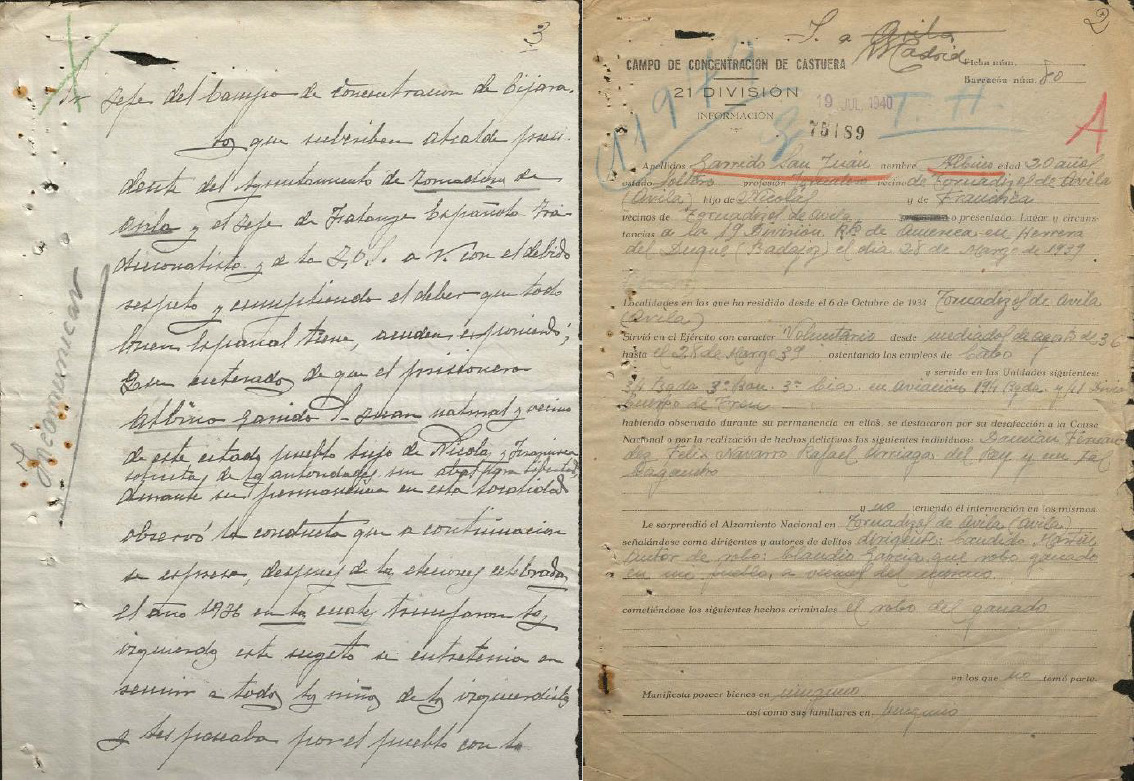 3
Sr Jefe del Campo de Concentracion de Cijara.
los que subscriben Alcalde presi-
dente del Ayuntamiento de Tornadizos de
Avila y el Jefe de Falange Española Tra-
dicionalista y de la J.O.S. a V. con el debido
respeto y cumpliendo el deber que todo
buen Español tiene, acuden exponiendo;
que enterados de que el prisionero
Albino Garrido S. Juan natural y vecino
de este pueblo hijo de Nicolas y Francisca
solicita de las autoridades un
durante su permanencia en esta localidad
observó la conducta que a continuacion
se expresa, despues de las elecciones celebradas
el año 1936 en las cuales triunfaron las
izquierdas este sugeto se entretenia en
reunir a todos los niños de los izquierdistas
y les paseaba por el pueblo con la
Incomunicar
2
T. a Avila
Madrid
CAMPO DE CONCENTRACIÓN DE CASTUERA
Ficha núm.
Barracón núm. 80
21 DIVISIÓN
19 JUL. 1940
INFORMACIÓN
T. H.
75189
A
Apellidos Garrido San Juan nombre Albino edad 20 años
estado soltero profesión jornalero vecino de Tornadizos de Avila
(Avila) hijo de Nicolás y de Francisca
vecinos de Tornadizos de Avila o presentado. Lugar y circuns-
tancias a la 19 División, en Herrera
del Duque (Badajoz) el dia 28 de Marzo de 1939
Localidades en los que ha residido desde el 6 de Octubre de 1934 Tornadizos de Avila
(Avila)
Sirvió en el Ejército con caracter Voluntario desde mediados de agosto del 36
hasta el 28 de Marzo 39 ostentando los empleos de Cabo
y servido en las Unidades siguientes:
Bgda 3º Bon. 3ª Cia. en aviación Bgda. y
Cuerpo de Tren
habiendo observado durante su permanencia en ellos, se destacaron por su desafección a la Causa
Nacional o por la realización de hechos delictivos los siguientes individuos: Damián Fernan-
dez Felix Navarro Rafael Arriagas del Rey y un tal
Sagastro
y no teniendo el intervención en los mismos.
Le sorprendió el Alzamiento Nacional en Tornadizos de Avila (Avila)
señalándose como dirigentes y autores de delitos dirigente: Candido Martin
Autor de robo: Claudio Garcia que robo ganado
en mi pueblo, a vecinos del mismo
cometiéndose los siguientes hechos criminales el robo del ganado
en los que no tomó parte.
Manifiesta poseer bienes en ninguno
así como sus familiares en ninguno